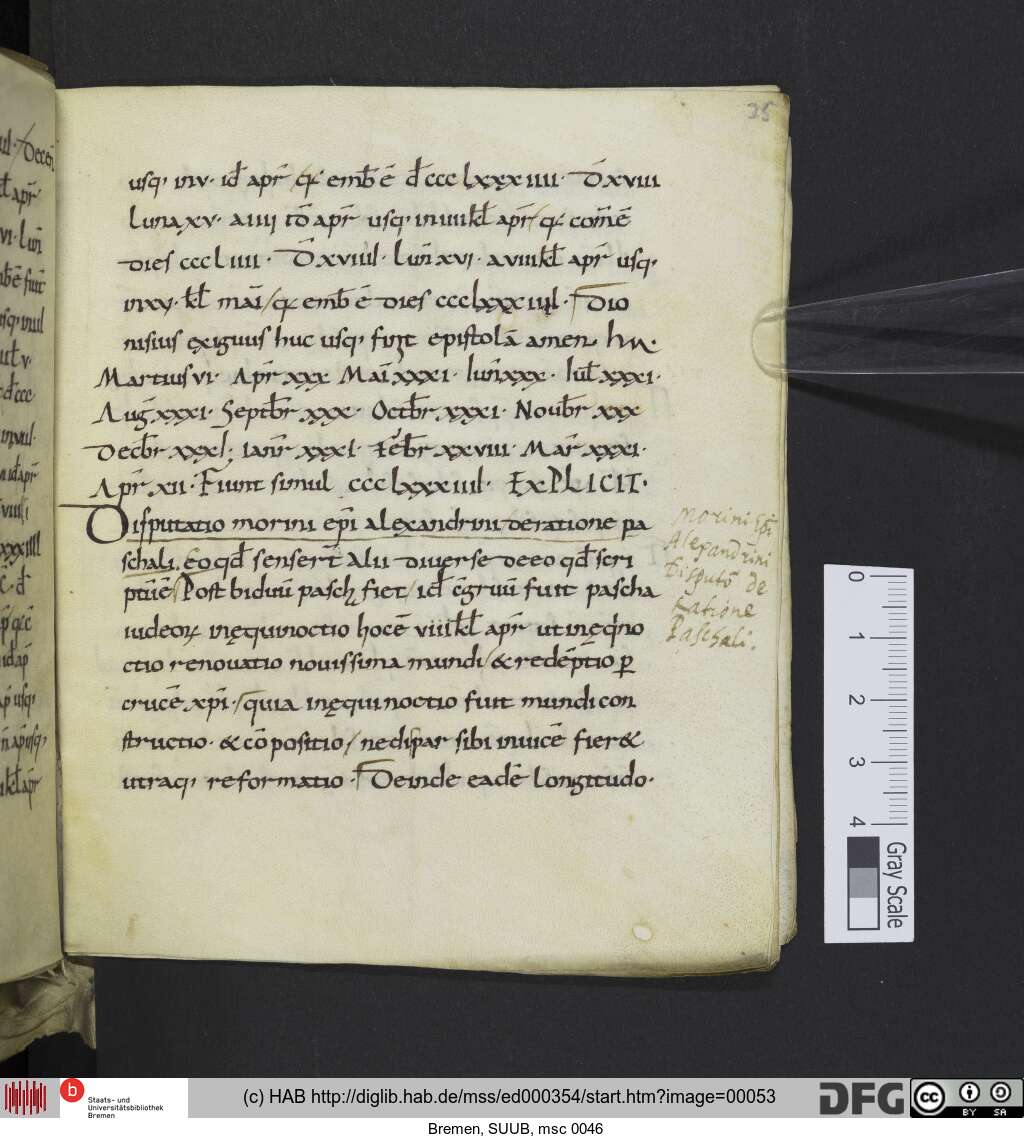 35
usq; in v. id apr̄ / q̨ emb̄ ē d̄ ccc lxxxiiii. D̄ xviii
Luna xv. a iiii id̄ apr̄ usq; in iiii kl̄ apr̄ / q̨ com̄ ē
dies cccliiii. D̄ xviiii. Lun̄ xvi. a viii kl̄ apr̄ usq;
in xv. kl̄ mai / q̨ emb̄ ē dies ccclxxxiiii. Dio
nisius exiguus huc usq; finit epistolā amen
Martius vi. Apr̄ xxx Mai xxxi. Iun̄ xxx. Iul̄ xxxi.
Auḡ xxxi. Septb̄r xxx. Octb̄r xxxi. Noub̄r xxx
Decb̄r xxxi; ianr̄ xxxi. Feb̄r xxviii. Mar̄ xxxi.
Apr̄ xii. Fiunt simul ccclxxxiiii. EXPLICIT.
Disputatio morini epī alexandrini de ratione pa
schali. Eo qd̄ senser̄t Alii diuerse de eo qd̄ scri
ptū ē / Post biduū pasch̨ fiet / id̄ c̄gruū fuit pascha
iudeoꝝ in ęquinoctio hoc ē viii kl̄ apr̄ ut in ęq̄no
ctio renouatio nouissima mundi / & redēptio ꝑ
crucē xp̄i. / quia in ęquinoctio fuit mundi con
structio. & cōpositio / ne dispar sibi inuicē fier&
utraq; reformatio. Deinde eadē longitudo.
Morini Ep̄i
Alexandrini
Disputō de
Ratione
Paschali.
0
1
2
3
4
Gray Scale
b
Staats- und
Universitätsbibliothek
Bremen
(c) HAB http://diglib.hab.de/mss/ed000354/start.htm?image=00053
DFG
cc
BY SA
Bremen, SUUB, msc 0046